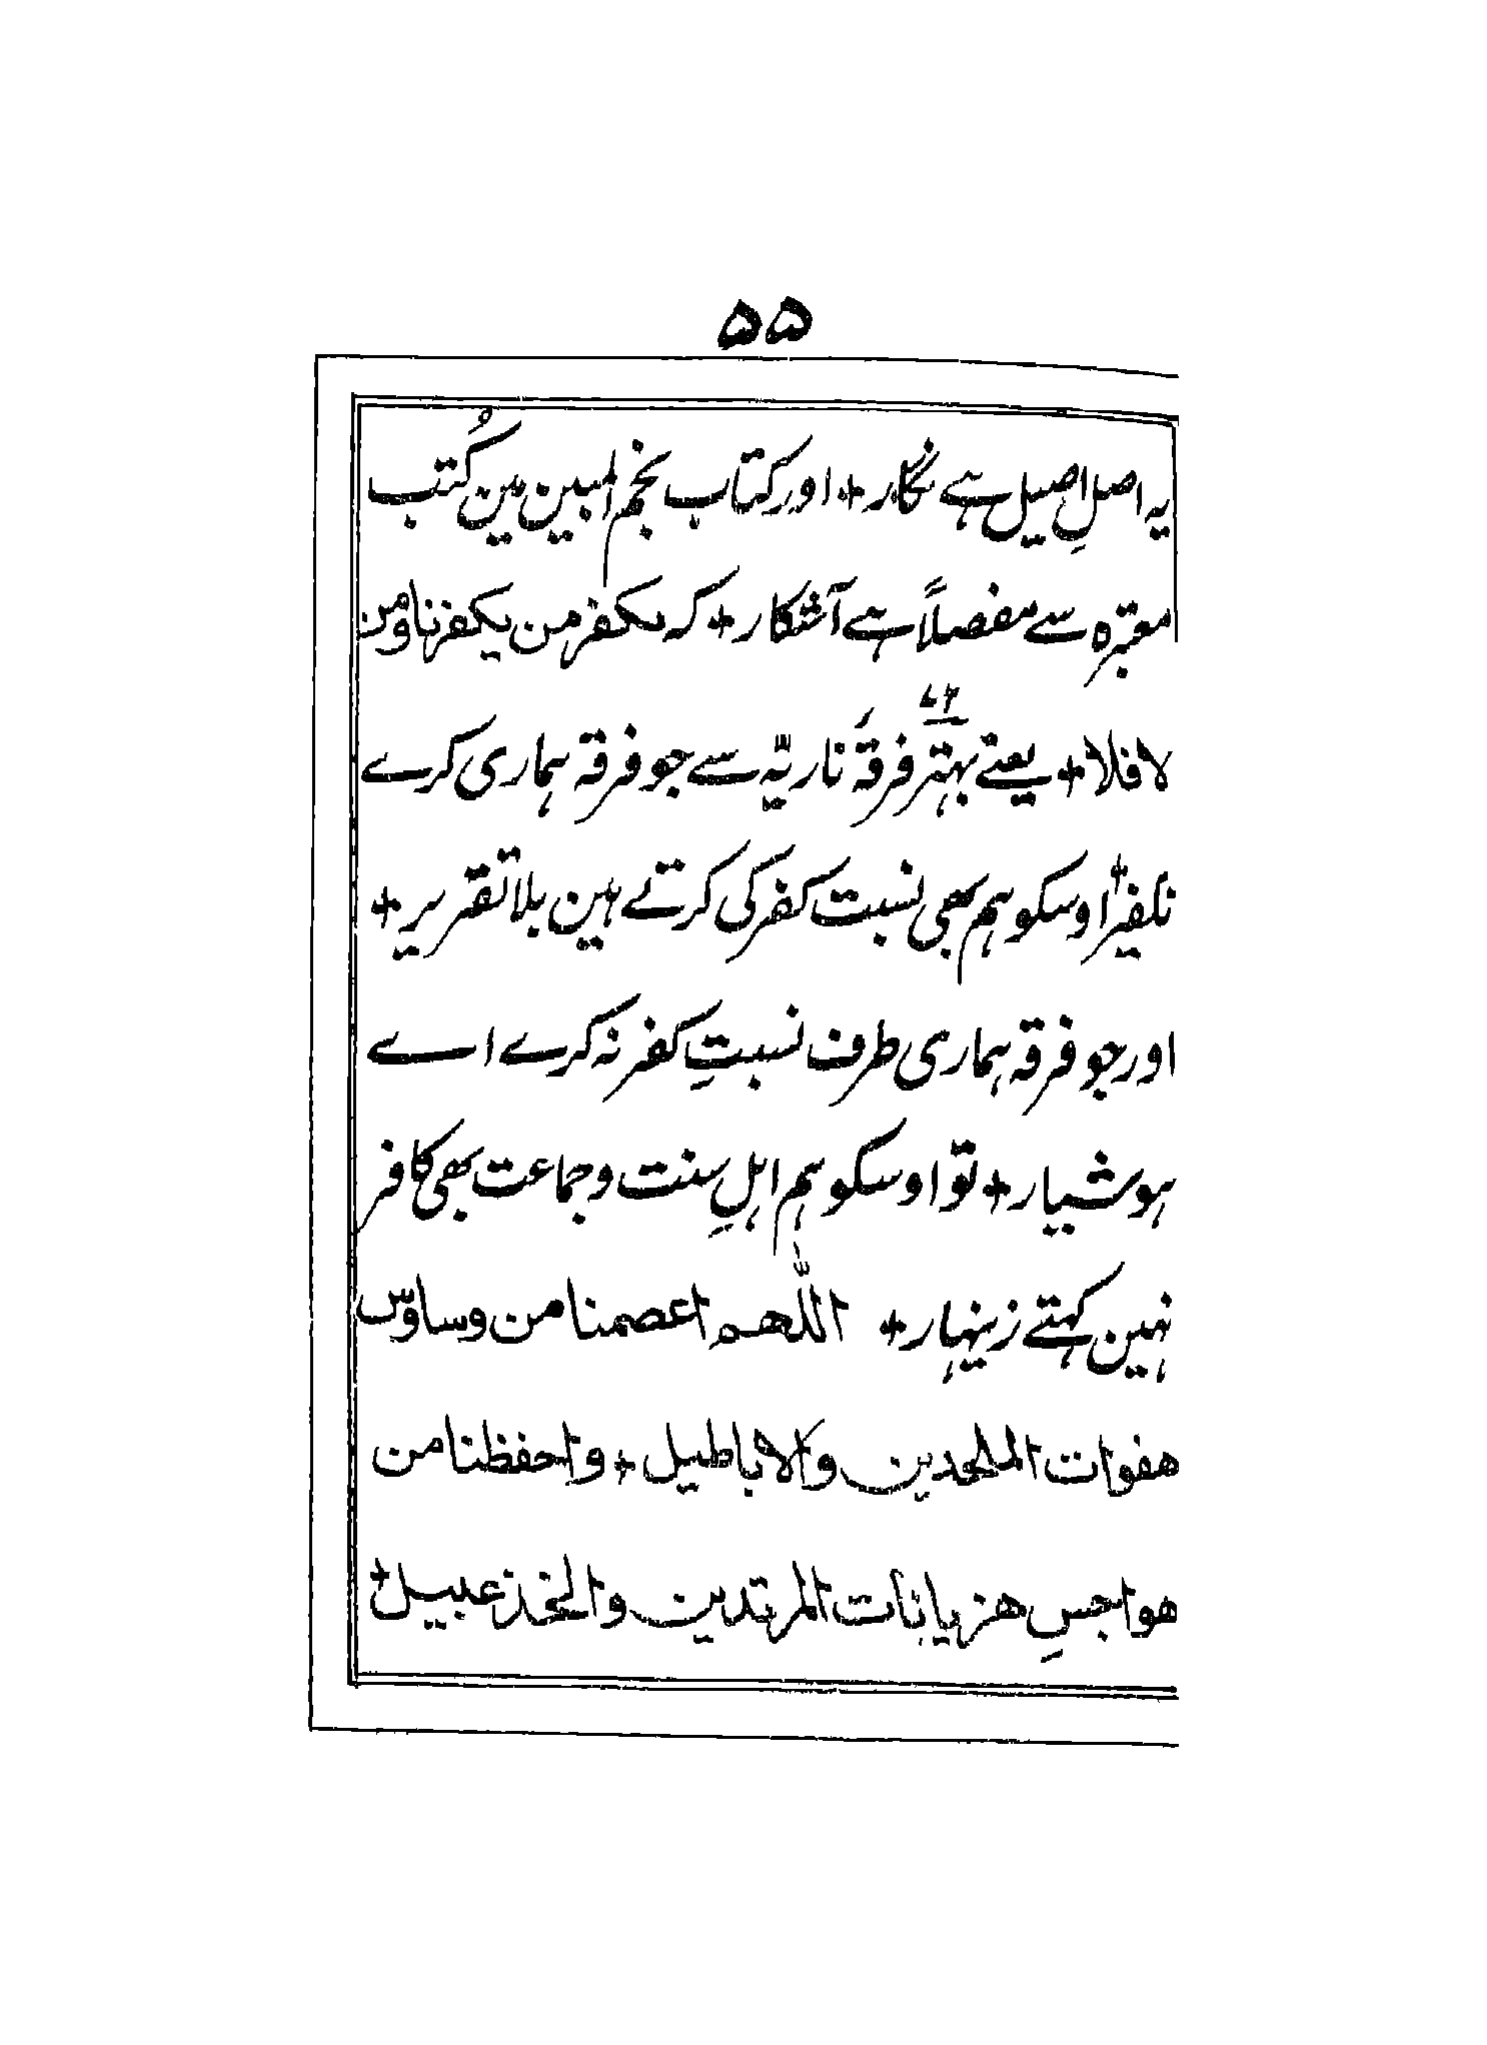 ۵۵
یہ اصلِ اصیل ہے نگار + اور کتاب نجم المبین مین کُتب
معتبرہ سے مفصلاً ہے آشکار + کہ نکفر من یکفرنا ومن
لا فلا + یعنے بہتر ۷۲ فرقہٴ ناریّہ سے جو فرقہ ہماری کرے
تکفیر + اوسکو ہم بھی نسبت کفر کی کرتے ہین بلا تقریر +
اور جو فرقہ ہماری طرف نسبتِ کفر نہ کرے اے
ہوشیار + تو اوسکو ہم اہلِ سنت و جماعت بھی کافر
نہین کہتے زینہار + اللّٰهم اعصمنا من وساوس
هفوات الملحدین والاباطیل + واحفظنا من
هواجسِ هزیانات المرتدین والخذعبیل +